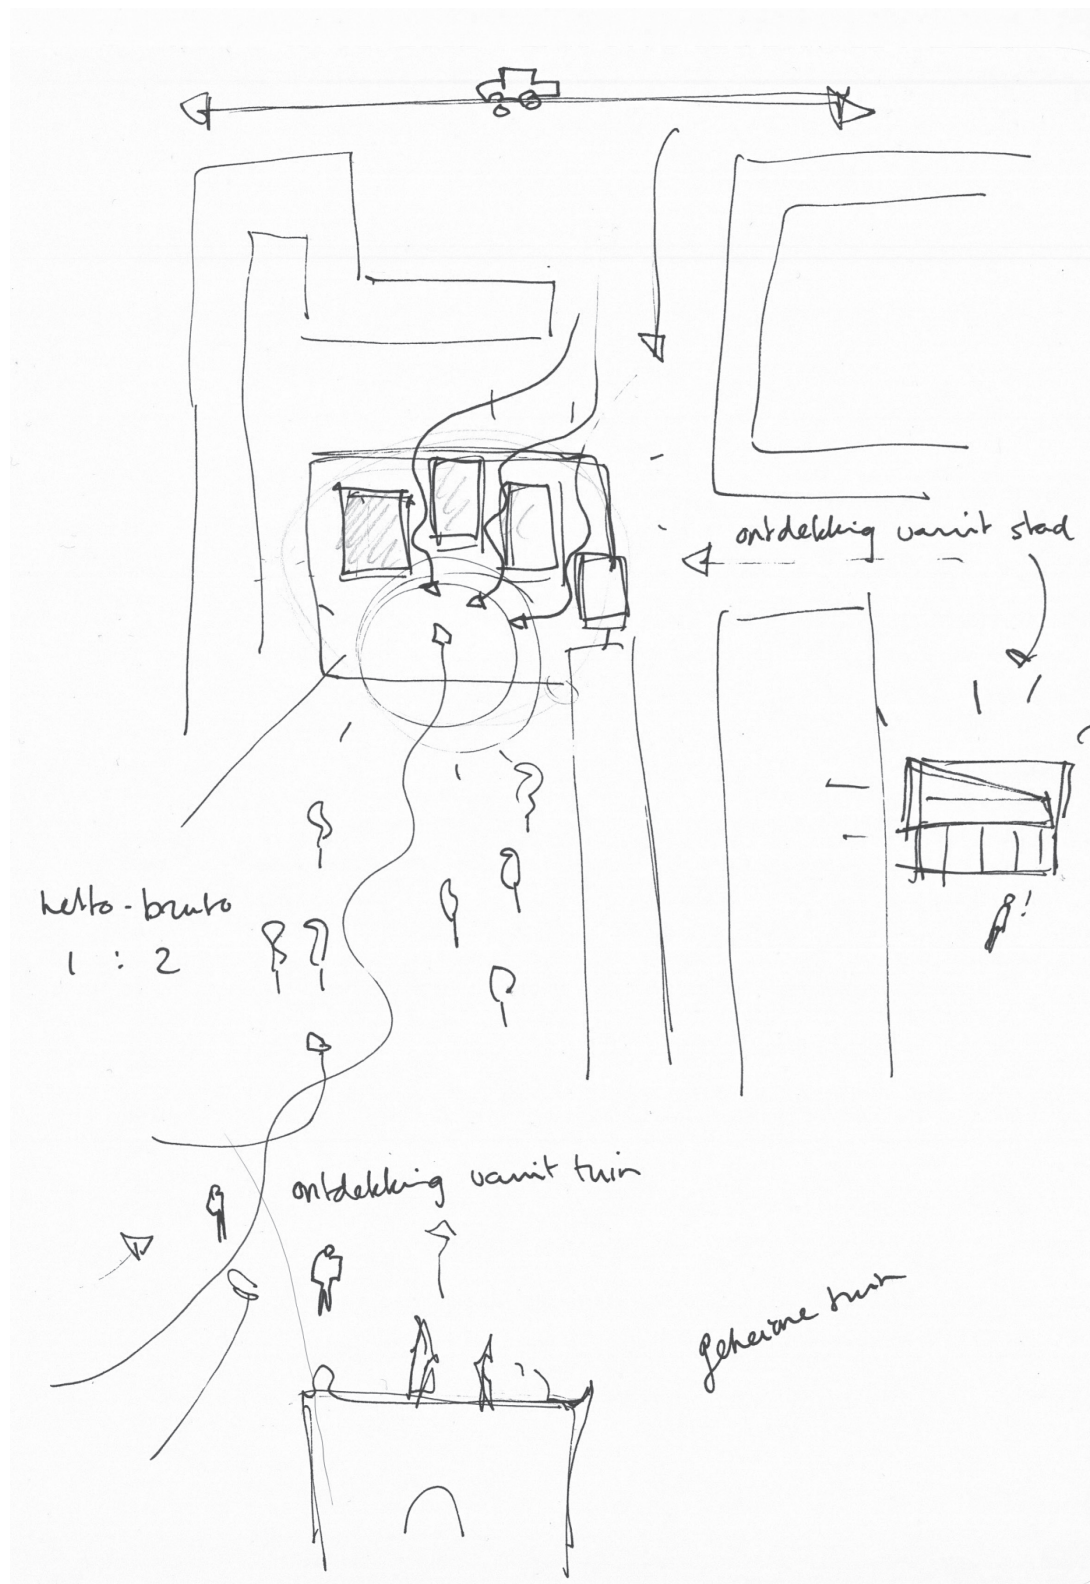 ontdekking vanuit stad
netto-bruto
1 : 2
ontdekking vanuit tuin
geheime tuin